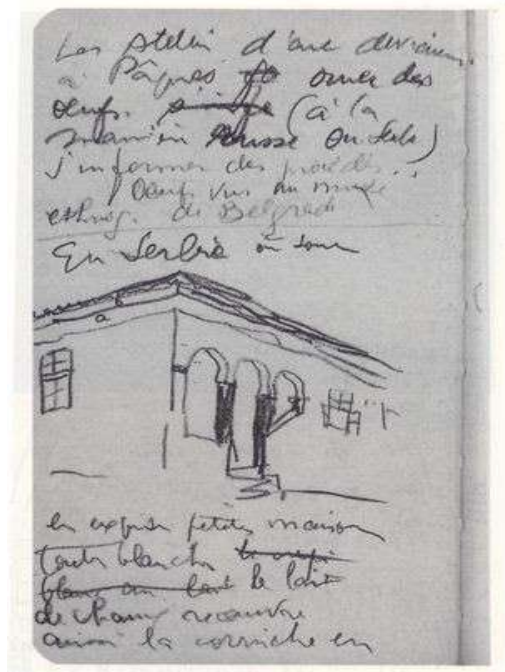 Les atelier d'art devraient
à Pâques orner des
oeufs. (à la
manière russe ou serbe)
s'informer des procédés..
Oeufs vus au musée
ethnog. de Belgrade
En Serbie on
petites maisons
toutes blanches
blanc le lait
de chaux recouvre
aussi la corniche en